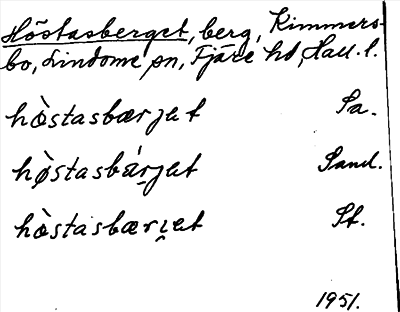 Höstasberget, berg, Kimmers-
bo, Lindome sn, Fjäre hd, Hall. l.
hòstasbærjet Sa.
hø̀stasbä́rjet Sand.
hòstasbæri̯et St.
1951.